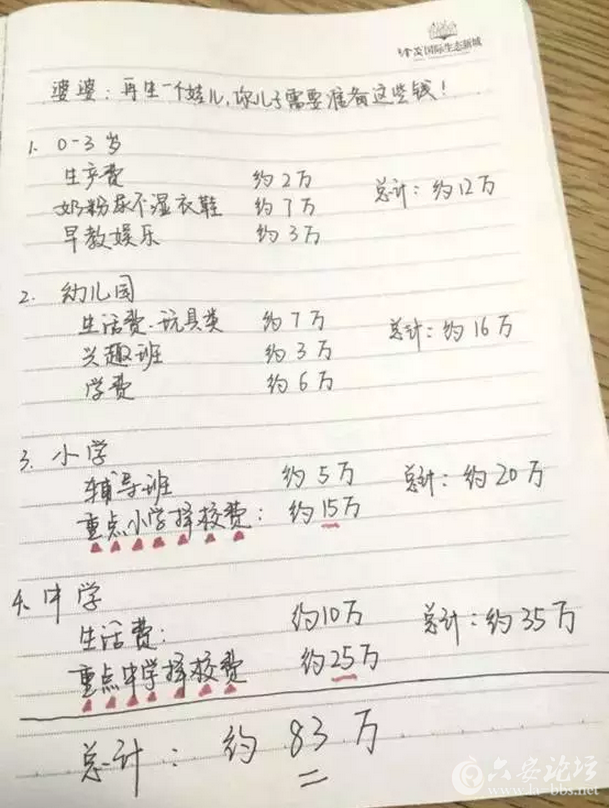 国际生态新城
婆婆：再生一个娃儿，你儿子需要准备这些钱！
1. 0-3岁
生产费 约2万 总计：约12万
奶粉尿不湿衣鞋 约7万
早教娱乐 约3万
2. 幼儿园
生活费.玩具类 约7万 总计：约16万
兴趣班 约3万
学费 约6万
3. 小学
辅导班 约5万 总计：约20万
重点小学择校费：约15万
4. 中学
生活费： 约10万 总计：约35万
重点中学择校费 约25万
总计：约83万
六安论坛
www.la-bbs.net